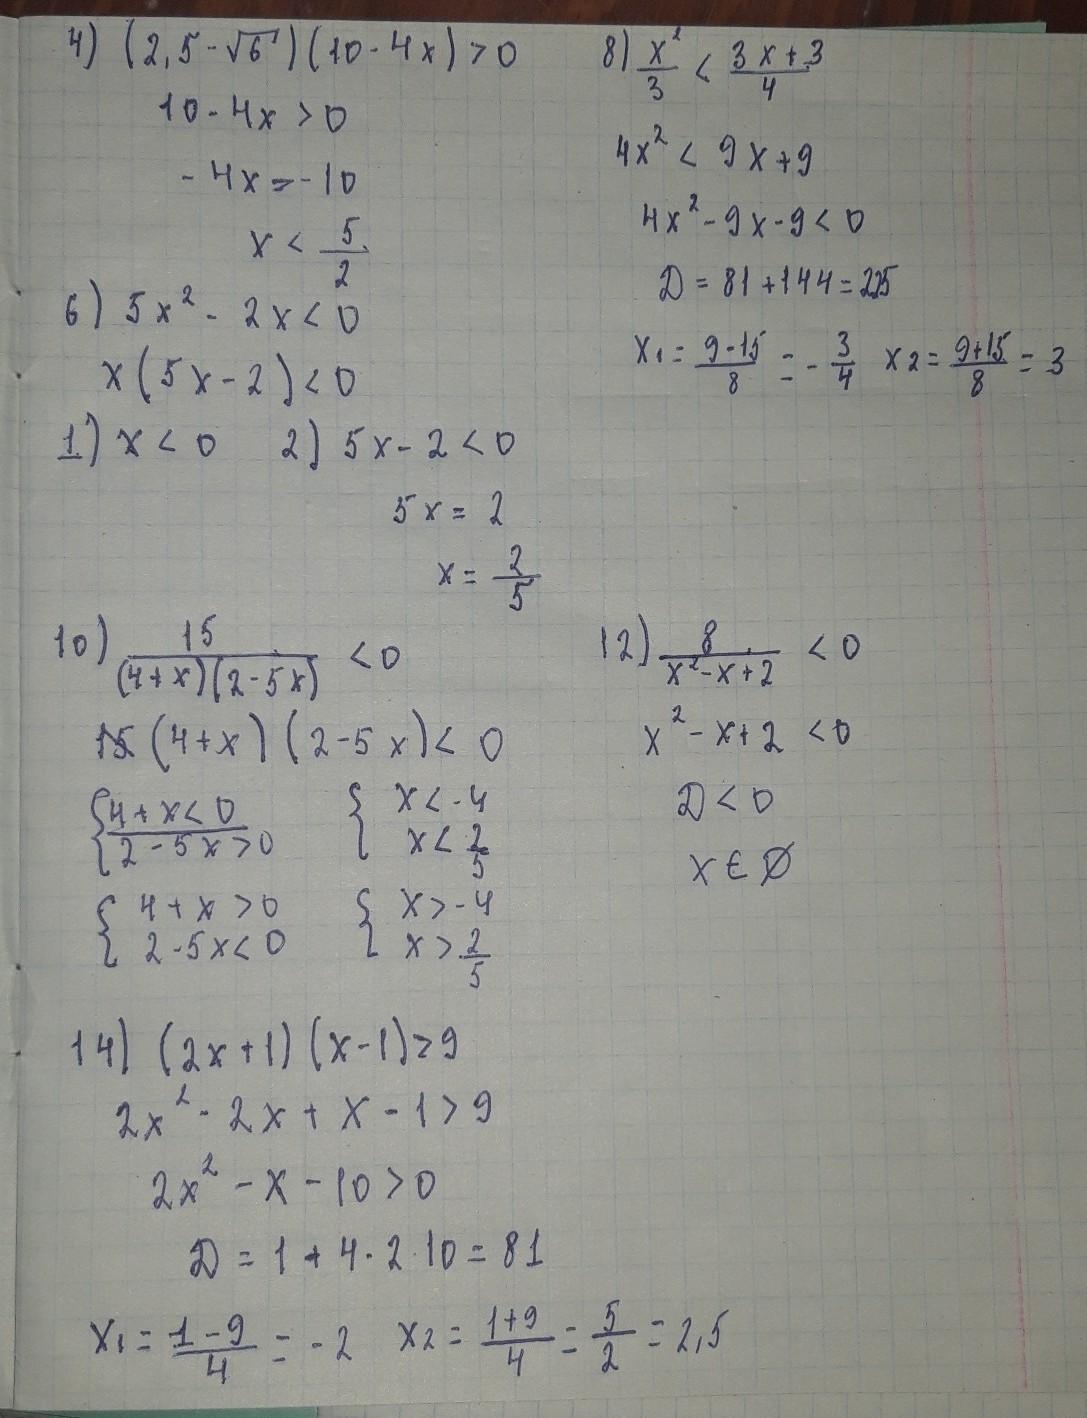 4) (2,5 - √6)(10 - 4x) > 0
10 - 4x > 0
- 4x = -10
x < 5/2
6) 5x² - 2x < 0
x(5x - 2) < 0
1) x < 0 2) 5x - 2 < 0
5x = 2
x = 2/5
8) x²/3 < (3x + 3)/4
4x² < 9x + 9
4x² - 9x - 9 < 0
D = 81 + 144 = 225
x₁ = (9 - 15)/8 = - 3/4 x₂ = (9 + 15)/8 = 3
10) 15/((4 + x)(2 - 5x)) < 0
15(4 + x)(2 - 5x) < 0
{ 4 + x < 0 { x < -4
2 - 5x > 0 x < 2/5
{ 4 + x > 0 { x > -4
2 - 5x < 0 x > 2/5
12) 8/(x² - x + 2) < 0
x² - x + 2 < 0
D < 0
x ∈ ∅
14) (2x + 1)(x - 1) > 9
2x² - 2x + x - 1 > 9
2x² - x - 10 > 0
D = 1 + 4 · 2 · 10 = 81
x₁ = (1 - 9)/4 = - 2 x₂ = (1 + 9)/4 = 5/2 = 2,5